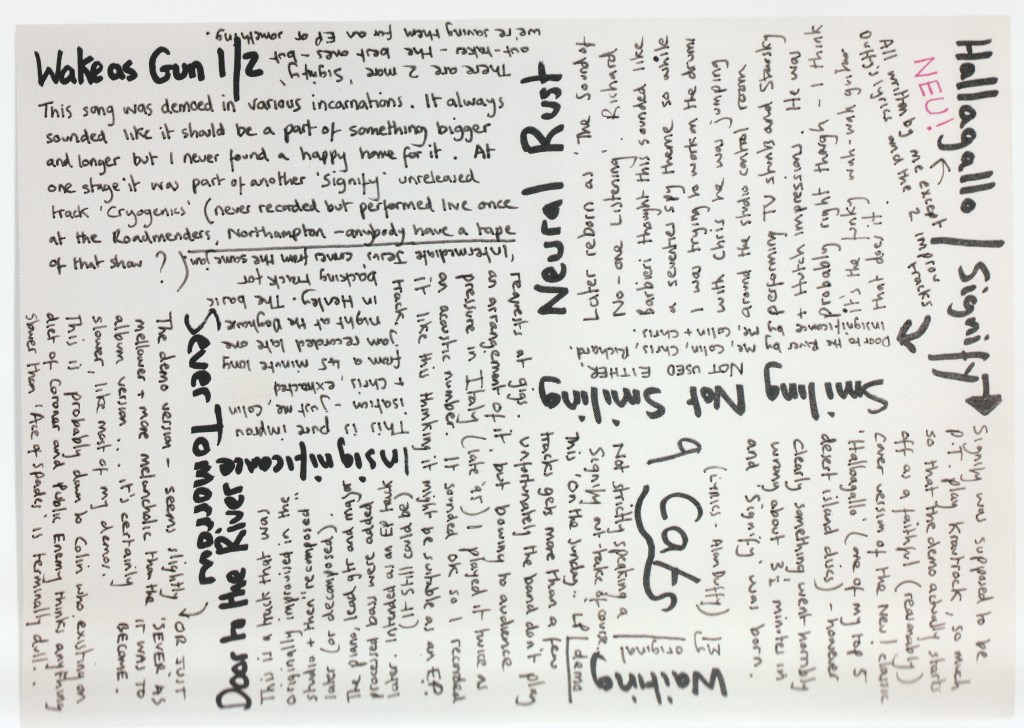 Wake as Gun 1/2
This song was demoed in various incarnations. It always
sounded like it should be a part of something bigger
and longer but I never found a happy home for it. At
one stage it was part of another 'Signify' unreleased
track 'Cryogenics' (never recorded but performed live once
at the Roadmenders, Northampton - anybody have a tape
of that show?
Hallagallo / Signify
NEU!
Signify was supposed to be
P.T. play Krautrock, so much
so that the demo actually starts
off as a faithful (reasonably)
cover version of the Neu! classic
'Hallagallo' (one of my top 5
desert island discs) - however
clearly something went horribly
wrong about 3½ minutes in
and 'Signify' was born.
All written by me except
Duffy's lyrics and the 2 improv
tracks
Waiting
Not strictly speaking a
Signify out-take of course.
This 'On the Sunday..' LP
demo
tracks gets more than a few
requests at gigs. Unfortunately the band don't play
an arrangement of it.. but bowing to audience
pressure in Italy (late '95) I played it twice as
an acoustic number. It sounded ok so I recorded
it like this thinking it might be suitable as an EP
track. (it still could be)
Smiling Not Smiling
(Lyrics - Alan Duffy)
13y original
NOT USED EITHER.
9 Cats
Door to the River by
Insignificance me, Colin, Chris, Richard.
me, Colin + Chris
Neural Rust
Later reborn as 'The Sound of
No-one Listening'. Richard
Barbieri thought this sounded like
a seventies spy theme so while
I was trying to work on the drums
with Chris he was jumping
around the studio control room
performing TV stunts and Starsky
+ Hutch impressions. He was
probably right though - I think
it's the funky wah-wah guitar
that does it!
There are 2 more 'Signify'
out-takes - the best ones - but
we're saving them for an EP or something.
Insignificance
This is pure improv
isation - just me, Colin
+ Chris, extracted
from a 45 minute long
jam recorded late one
night at the Doghouse
in Henley. The basic
backing track for
'Intermediate Jesus' comes from the same jam.
Door to the River
This is a track that was
originally improvised in the
studio + then "recomposed"
later (or decomposed).
The piano, lead gtr and major
processed drums were added
later. Intended as an EP track
Sever Tomorrow
OR JUST
'SEVER' AS
IT WAS TO
BECOME.
The demo version - seems slightly
mellower + more melancholic than the
album version... it's certainly
slower, like most of my demos.
This is probably down to Colin who existing on
diet of Coroner and Public Enemy thinks anything
slower than 'Ace of Spades' is terminally dull..